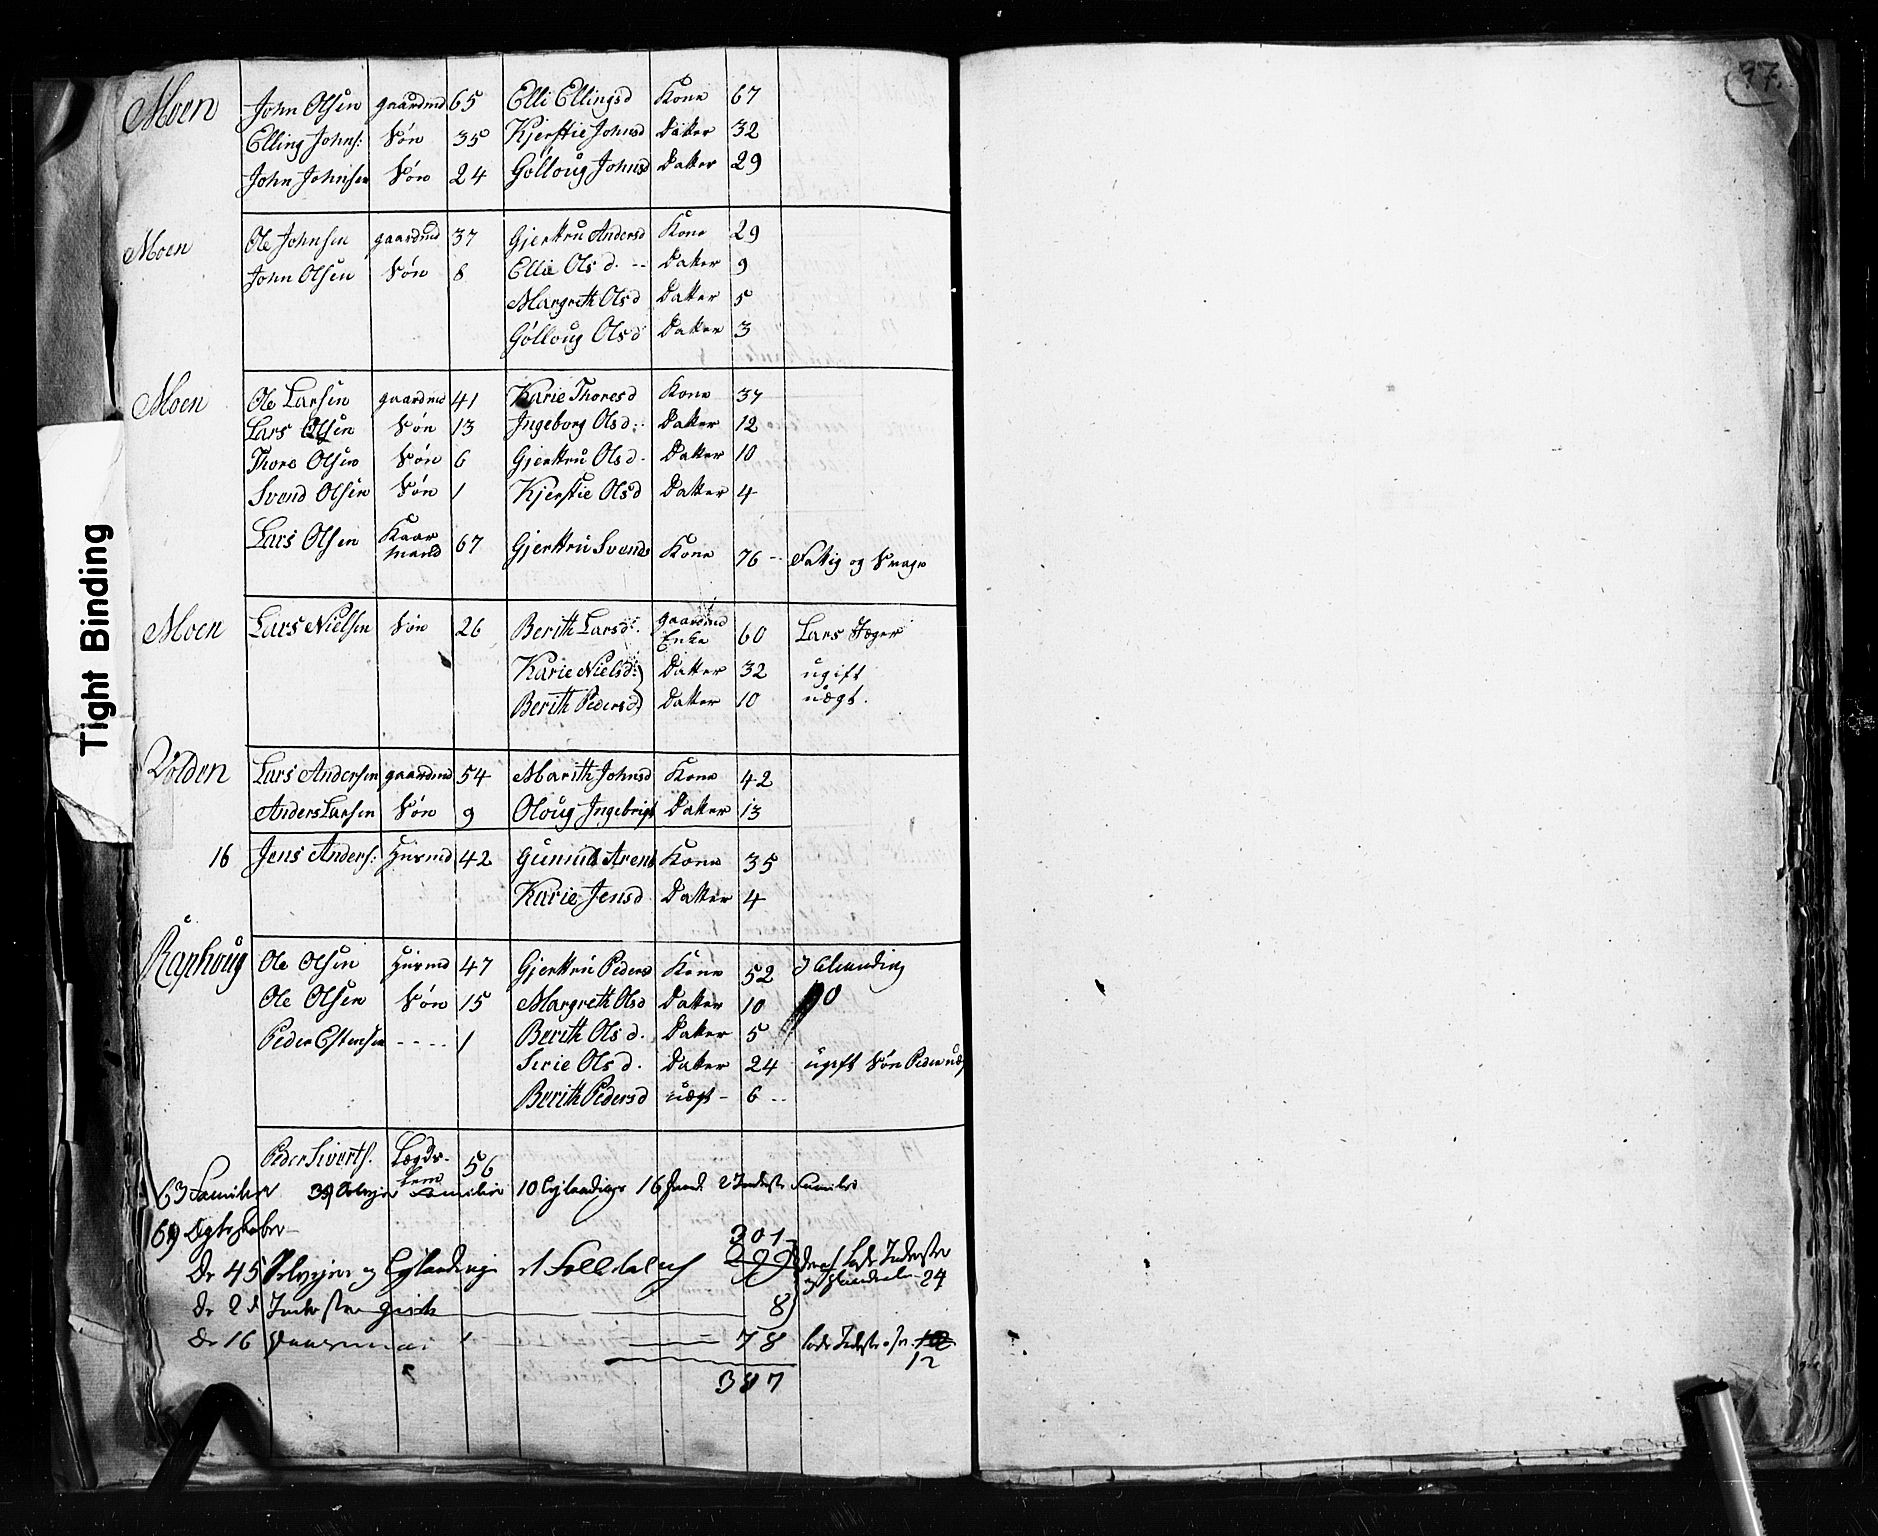 37.
Tight Binding
Moen John Olsen gaardmd 65 Elli Ellingsd Kone 67
Elling Johns: Søn 35 Kjerstie Johnsd Datter 32
John Johnsen Søn 24 Gølloug Johnsd Datter 29
Moen Ole Johnsen gaardmd 37 Gjertru Andersd Kone 29
John Olsen Søn 8 Elli Olsd. -- Datter 9
Margreth Olsd Datter 5
Gølloug Olsd Datter 3
Moen Ole Larsen gaardmd 41 Karie Thoresd Kone 37
Lars Olsen Søn 13 Ingeborg Olsd: Datter 12
Thore Olsen Søn 6 Gjertru Olsd. Datter 10
Svend Olsen Søn 1 Kjerstie Olsd Datter 4
Lars Olsen Kaar mand 67 Gjertru Svends Kone 76 -- Fattig og Svage
Moen Lars Nielsen Søn 26 Berith Larsd: gaardmd Enke 60 Lars Jæger
Karie Nielsd: Datter 32 ugift
Berith Pedersd Datter 10 uægt.
Volden Lars Andersen gaardmd 54 Marith Johnsd Kone 42
Anders Larsen Søn 9 Oloug Ingebrigt Datter 13
16 Jens Anders: Huusmd 42 Gunnild Arent Kone 35
Karie Jensd. Datter 4
Raphoug Ole Olsen Huusmd 47 Gjertru Peders Kone 52
Ole Olsen Søn 15 Margreth Olsd Datter 10
Peder Estensen - - - - 1 Berith Olsd. Datter 5
Sirie Olsd. Datter 24 ugift Søn Peder uæ
Berith Pedersd uægt - 6 --
Peder Siverts. Lægds- lem 56
63 Familier 10 16 2 Inderste Familie
69 Ægteskaber
301
De 45 og
24
De 2 Inderste 8
De 16 78
12
387